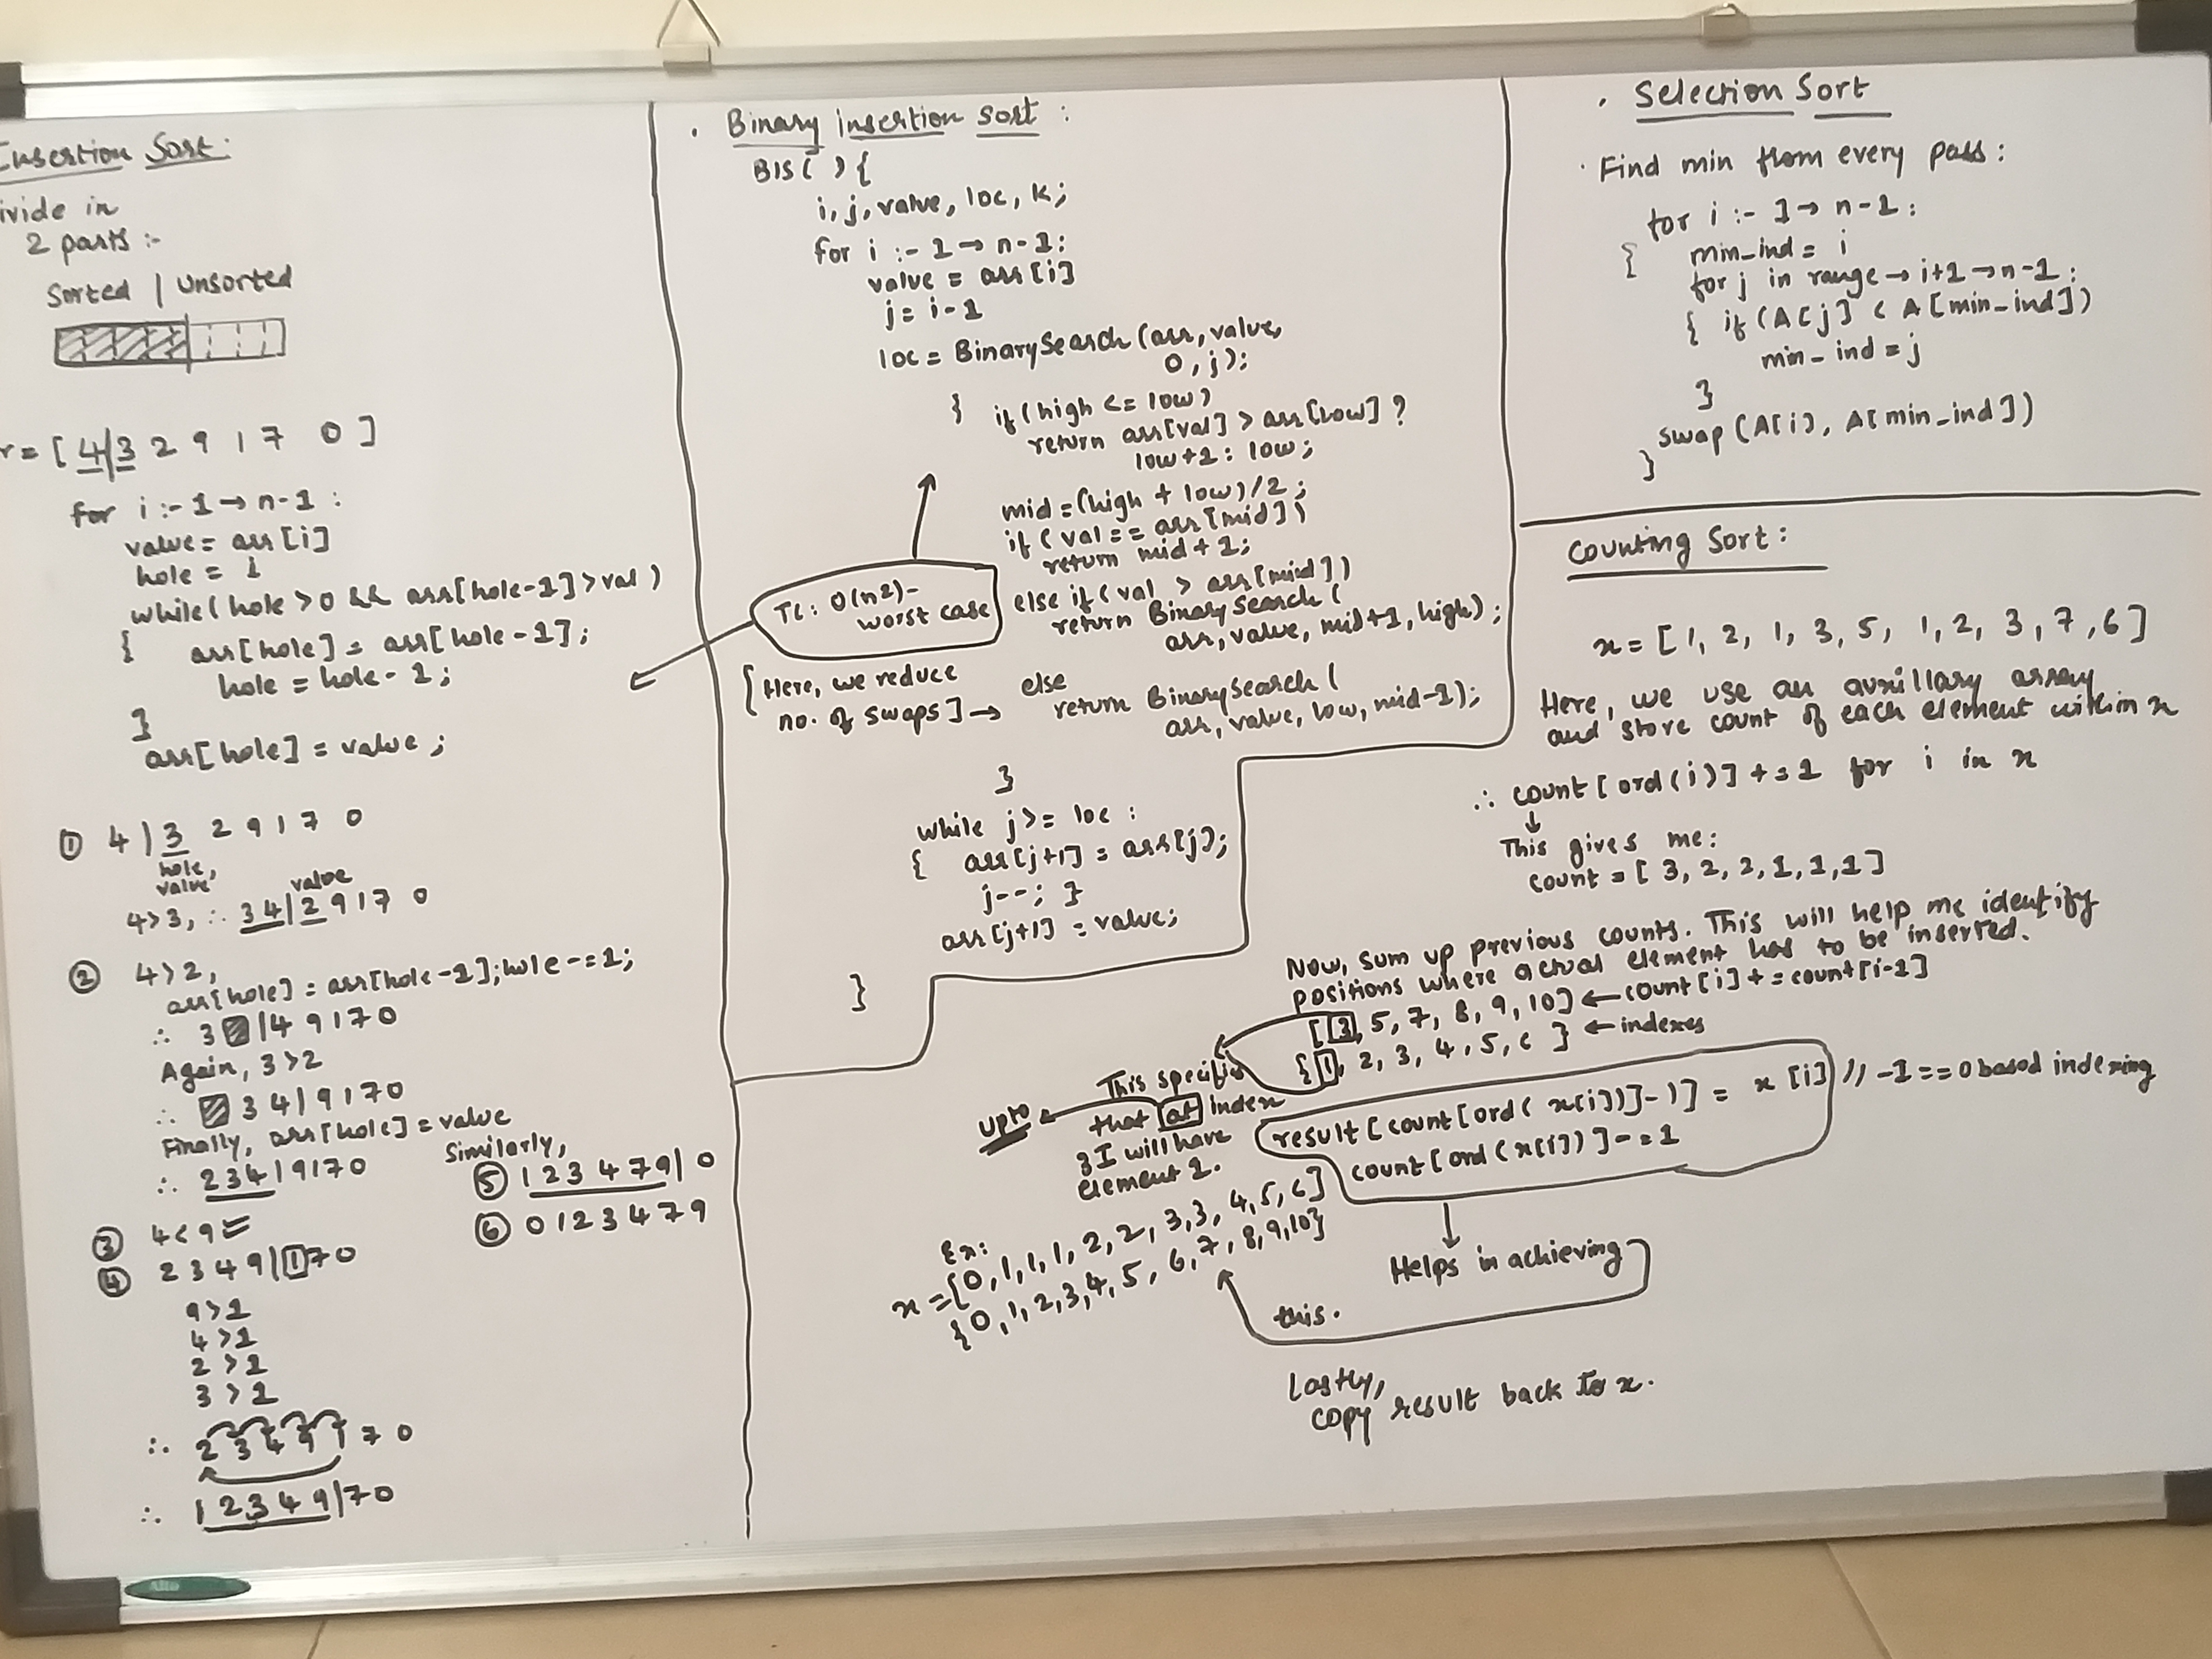 Insertion Sort:
ivide in
2 parts :-
Sorted | Unsorted
r = [ 4|3 2 9 1 7 0 ]
for i :- 1 → n-1 :
value = arr [i]
hole = i
while ( hole > 0 && arr[hole-1] > val )
{ arr[hole] = arr[hole-1];
hole = hole - 1;
}
arr[hole] = value ;
① 4 | 3 2 9 1 7 0
hole,
value
4>3, ∴ 3 4 | 2 9 1 7 0
value
② 4>2,
arr[hole] = arr[hole-1]; hole-=1;
∴ 3 | 4 9 1 7 0
Again, 3>2
∴ 3 4 | 9 1 7 0
Finally, arr[hole] = value
∴ 2 3 4 | 9 1 7 0
③ 4 < 9
④ 2 3 4 9 | 1 7 0
9 > 1
4 > 1
2 > 1
3 > 1
∴ 2 3 4 9 1 7 0
∴ 1 2 3 4 9 | 7 0
Similarly,
⑤ 1 2 3 4 7 9 | 0
⑥ 0 1 2 3 4 7 9
. Binary insertion sort :
BIS( ) {
i, j, value, loc, k;
for i :- 1 → n-1:
value = arr [i]
j = i-1
loc = BinarySearch (arr, value,
0, j);
{ if (high <= low)
return arr[val] > arr[low] ?
low+1 : low ;
mid = (high + low)/2 ;
if ( val == arr [mid] )
return mid + 1;
else if ( val > arr[mid] )
return BinarySearch (
arr, value, mid+1, high) ;
else
return BinarySearch (
arr, value, low, mid-1);
}
TC: O(n2)-
worst case
[ Here, we reduce
no. of swaps ] →
while j >= loc :
{ arr[j+1] = arr[j];
j--; }
arr[j+1] = value;
}
. Selection Sort
. Find min from every pass :
for i :- 1 → n-1 :
{ min_ind = i
for j in range → i+1 → n-1 :
{ if (A[j] < A[min_ind])
min_ind = j
}
swap (A[i], A[min_ind])
}
Counting Sort :
x = [ 1, 2, 1, 3, 5, 1, 2, 3, 7, 6 ]
Here, we use an auxillary array
and store count of each element within x
∴ count [ ord(i) ] += 1 for i in x
↓
This gives me:
count = [ 3, 2, 2, 1, 1, 1 ]
Now, sum up previous counts. This will help me identify
positions where actual element has to be inserted.
[ 3, 5, 7, 8, 9, 10 ] ← count[i] += count[i-1]
{ 1, 2, 3, 4, 5, 6 } ← indexes
This specifies
upto ← that at index
3 I will have
element 1.
result [ count [ ord( x[i]) ] -1 ] = x [i] // -1 == 0 based indexing
count [ ord ( x[i]) ] -= 1
Ex:
x = {0, 1, 1, 1, 2, 2, 3, 3, 4, 5, 6}
{0, 1, 2, 3, 4, 5, 6, 7, 8, 9, 10}
Helps in achieving
this.
Lastly,
copy result back to x.